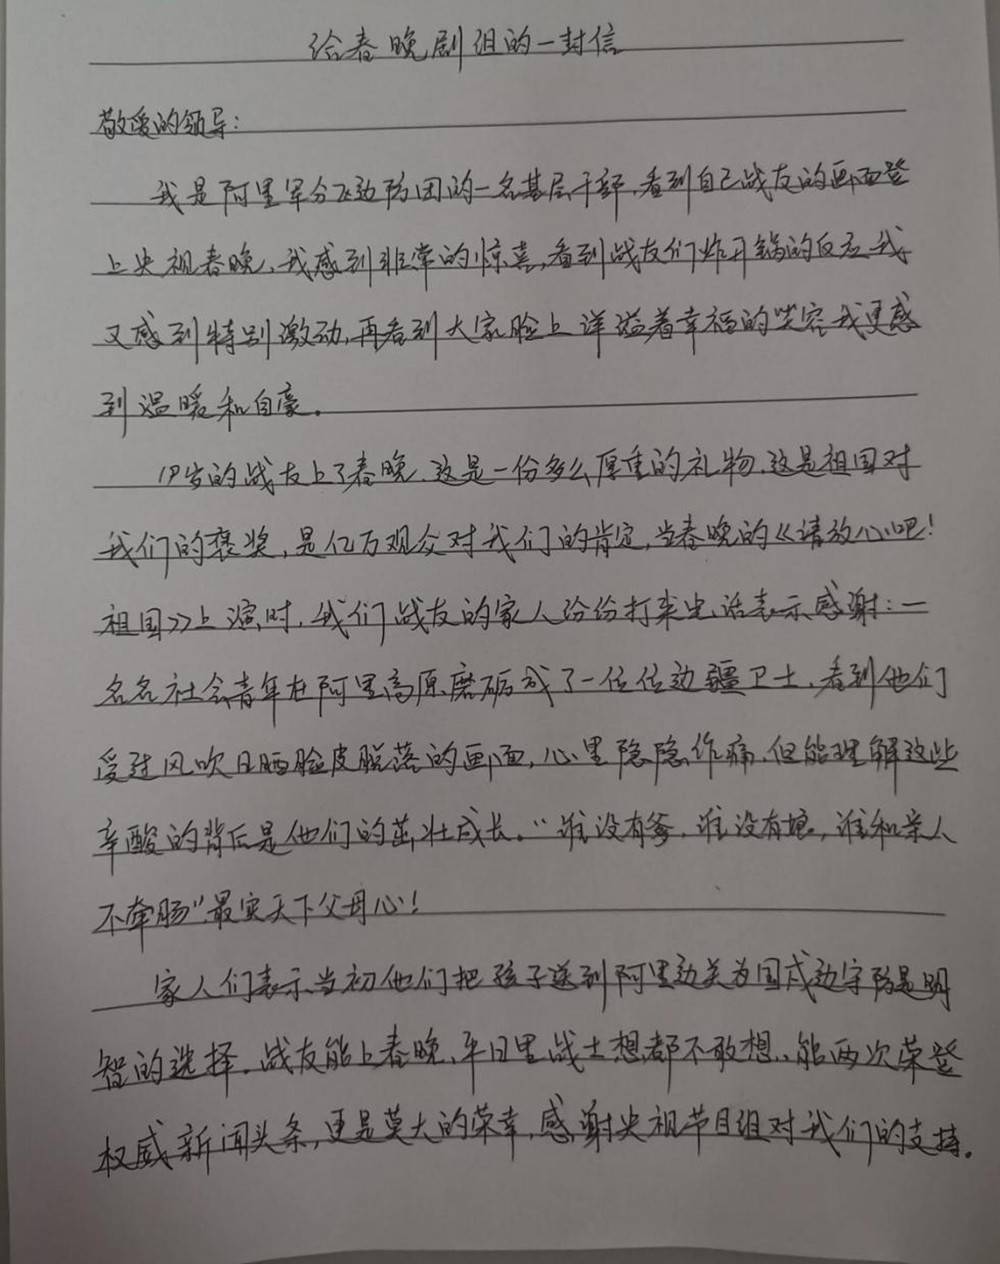 给春晚剧组的一封信
敬爱的领导：
我是阿里军分区边防团的一名基层干部，看到自己战友的画面登
上央视春晚，我感到非常的惊喜，看到战友们炸开锅的反应我
又感到特别激动，再看到大家脸上洋溢着幸福的笑容我更感
到温暖和自豪。
19岁的战友上了春晚，这是一份多么厚重的礼物，这是祖国对
我们的褒奖，是亿万观众对我们的肯定，当春晚的《请放心吧！
祖国》上演时，我们战友的家人纷份打来电话表示感谢：一
名名社会青年在阿里高原磨砺成了一位位边疆卫士，看到他们
受过风吹日晒脸皮脱落的画面，心里隐隐作痛，但能理解这些
辛酸的背后是他们的茁壮成长。“谁没有爹，谁没有娘，谁和亲人
不牵肠”最实天下父母心！
家人们表示当初他们把孩子送到阿里边关为国戍边守防是明
智的选择。战友能上春晚，平日里战士想都不敢想，能两次荣登
权威新闻头条，更是莫大的荣幸，感谢央视节目组对我们的支持。